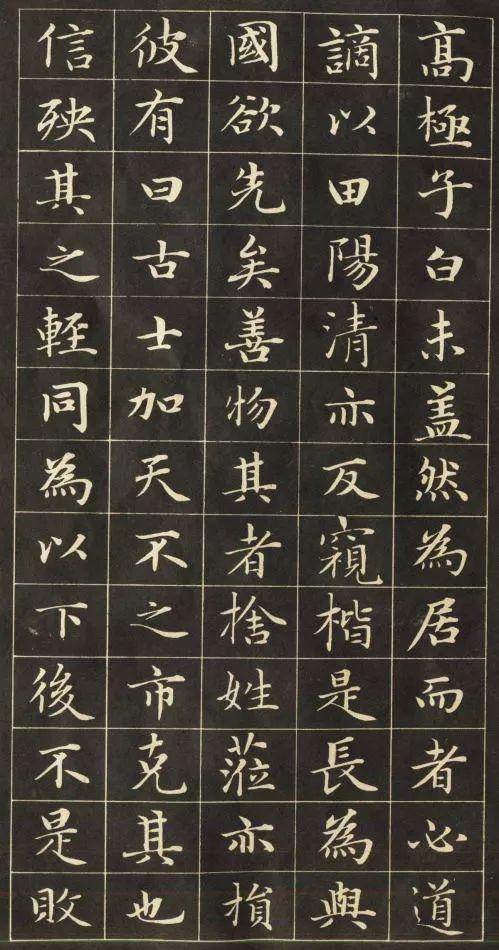 高極子白未盖然為居而者心道
謫以田陽清亦反窺楷是長為與
國欲先矣善物其者捨姓蒞亦損
彼有曰古士加天不之市克其也
信殃其之輕同為以下後不是敗